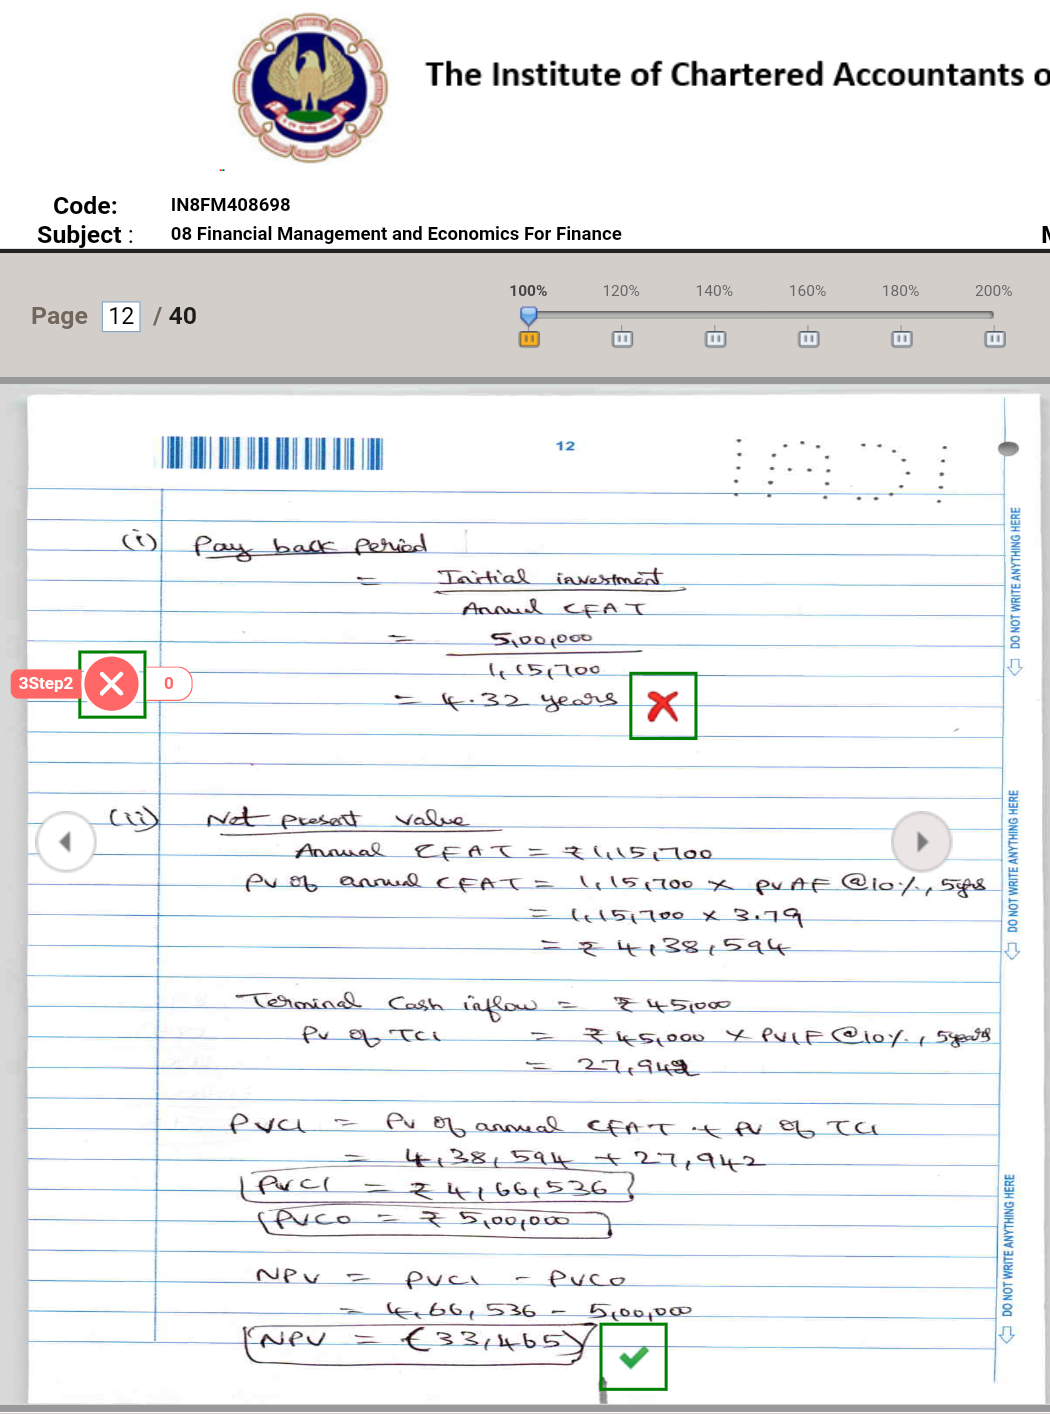 The Institute of Chartered Accountants o
Code: IN8FM408698
Subject : 08 Financial Management and Economics For Finance
100% 120% 140% 160% 180% 200%
Page 12 / 40
12
ICAI
(i) Pay back Period
= Initial investment
Annual CFAT
= 5,00,000
1,15,700
3Step2 0
= 4.32 years
(ii) Net present value
Annual CFAT = ₹1,15,700
PV of annual CFAT = 1,15,700 × PVAF @10%, 5yrs
= 1,15,700 × 3.79
= ₹ 4,38,594
Terminal Cash inflow = ₹ 45,000
PV of TCI = ₹45,000 × PVIF @10%, 5years
= 27,942
PVCI = PV of annual CFAT + PV of TCI
= 4,38,594 + 27,942
PVCI = ₹ 4,66,536
PVCO = ₹ 5,00,000
NPV = PVCI - PVCO
= 4,66,536 - 5,00,000
NPV = (33,465)
DO NOT WRITE ANYTHING HERE
DO NOT WRITE ANYTHING HERE
DO NOT WRITE ANYTHING HERE